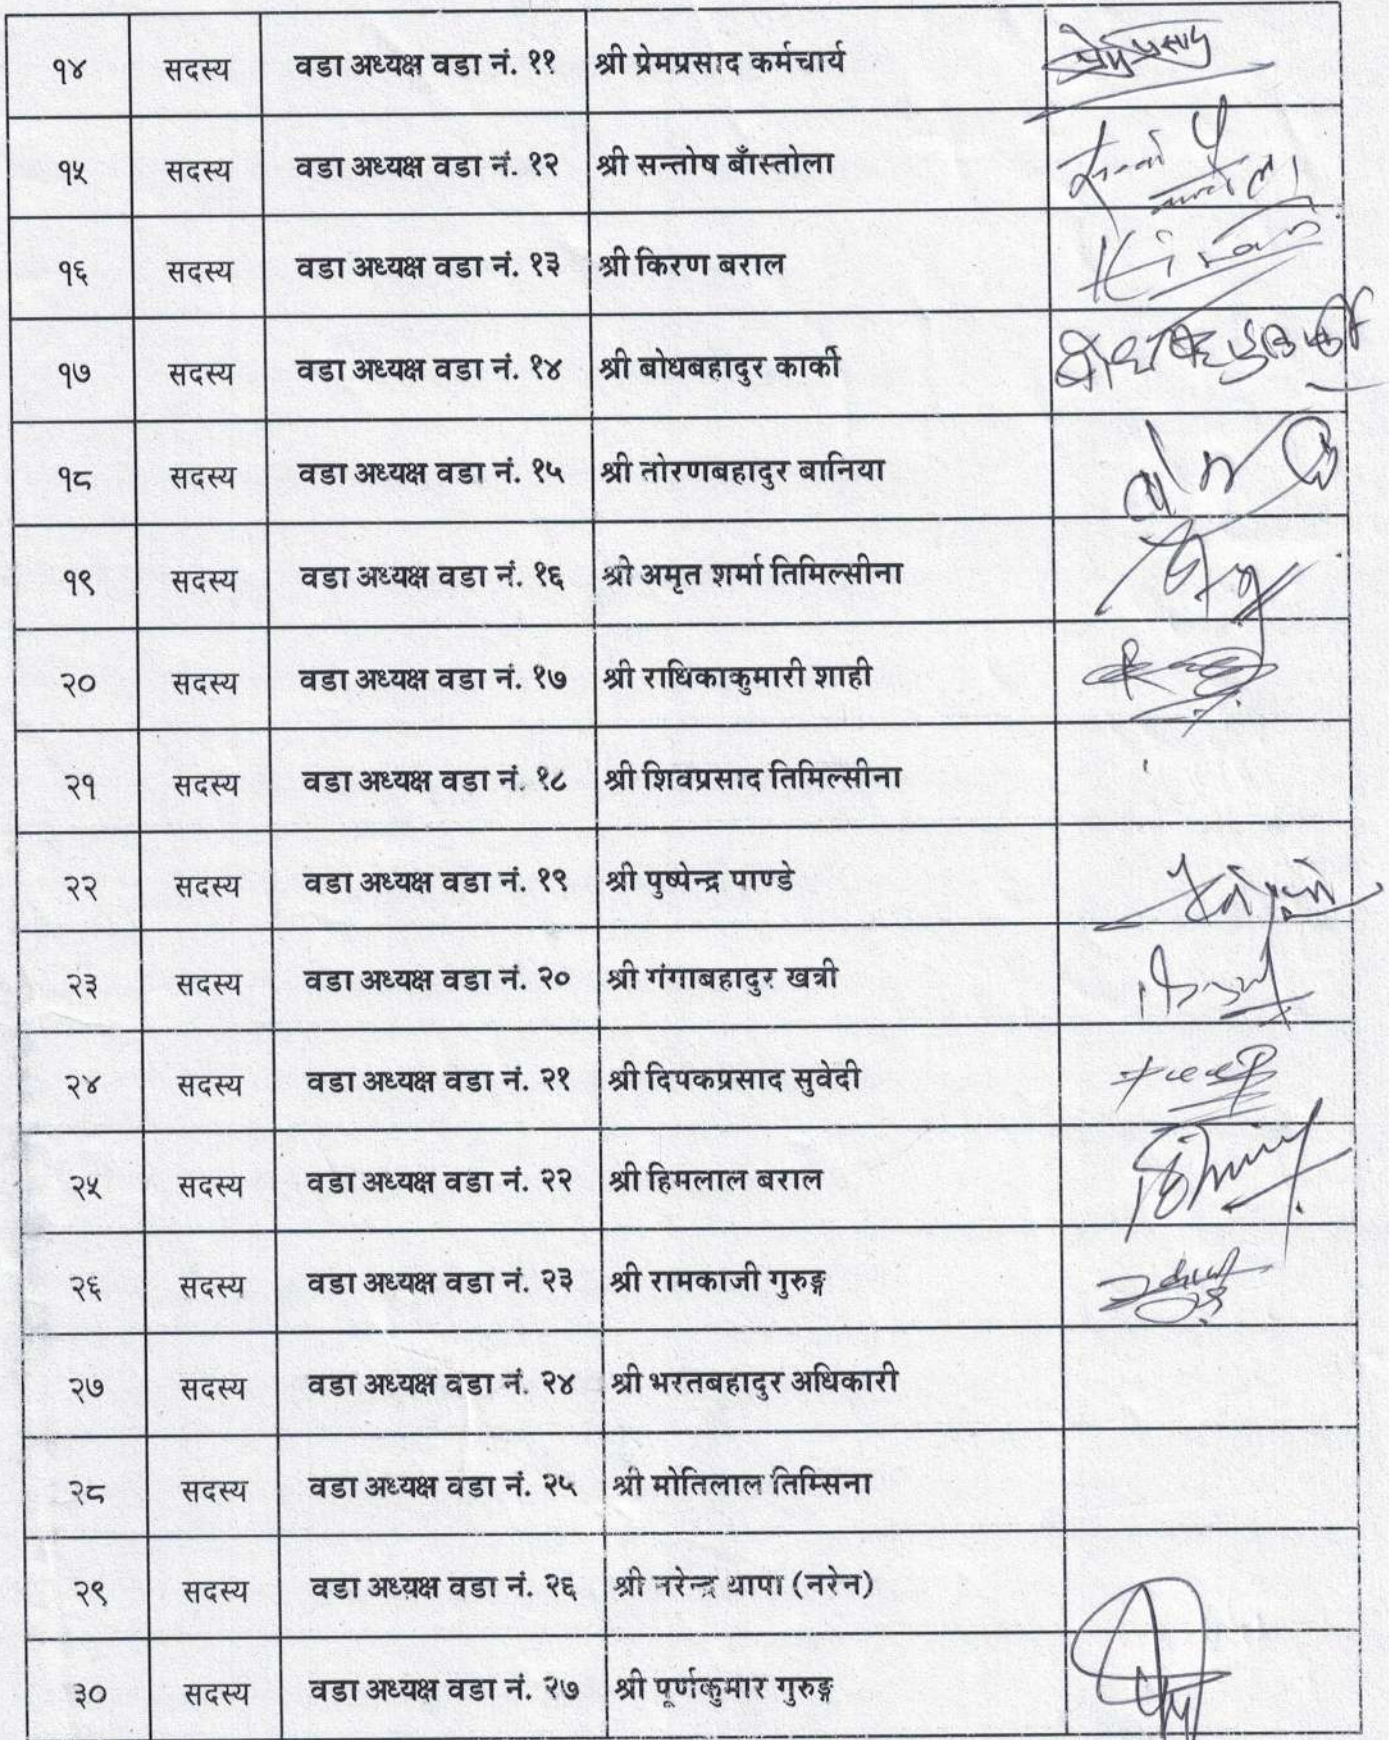 १४ सदस्य वडा अध्यक्ष वडा नं. ११ श्री प्रेमप्रसाद कर्मचार्य प्रेमप्रसाद
१५ सदस्य वडा अध्यक्ष वडा नं. १२ श्री सन्तोष बाँस्तोला
१६ सदस्य वडा अध्यक्ष वडा नं. १३ श्री किरण बराल Kiran
१७ सदस्य वडा अध्यक्ष वडा नं. १४ श्री बोधबहादुर कार्की
१८ सदस्य वडा अध्यक्ष वडा नं. १५ श्री तोरणबहादुर बानिया
१९ सदस्य वडा अध्यक्ष वडा नं. १६ श्री अमृत शर्मा तिमिल्सीना
२० सदस्य वडा अध्यक्ष वडा नं. १७ श्री राधिकाकुमारी शाही
२१ सदस्य वडा अध्यक्ष वडा नं. १८ श्री शिवप्रसाद तिमिल्सीना
२२ सदस्य वडा अध्यक्ष वडा नं. १९ श्री पुष्पेन्द्र पाण्डे
२३ सदस्य वडा अध्यक्ष वडा नं. २० श्री गंगाबहादुर खत्री
२४ सदस्य वडा अध्यक्ष वडा नं. २१ श्री दिपकप्रसाद सुवेदी
२५ सदस्य वडा अध्यक्ष वडा नं. २२ श्री हिमलाल बराल
२६ सदस्य वडा अध्यक्ष वडा नं. २३ श्री रामकाजी गुरुङ्ग
२७ सदस्य वडा अध्यक्ष वडा नं. २४ श्री भरतबहादुर अधिकारी
२८ सदस्य वडा अध्यक्ष वडा नं. २५ श्री मोतिलाल तिम्सिना
२९ सदस्य वडा अध्यक्ष वडा नं. २६ श्री नरेन्द्र थापा (नरेन)
३० सदस्य वडा अध्यक्ष वडा नं. २७ श्री पूर्णकुमार गुरुङ्ग